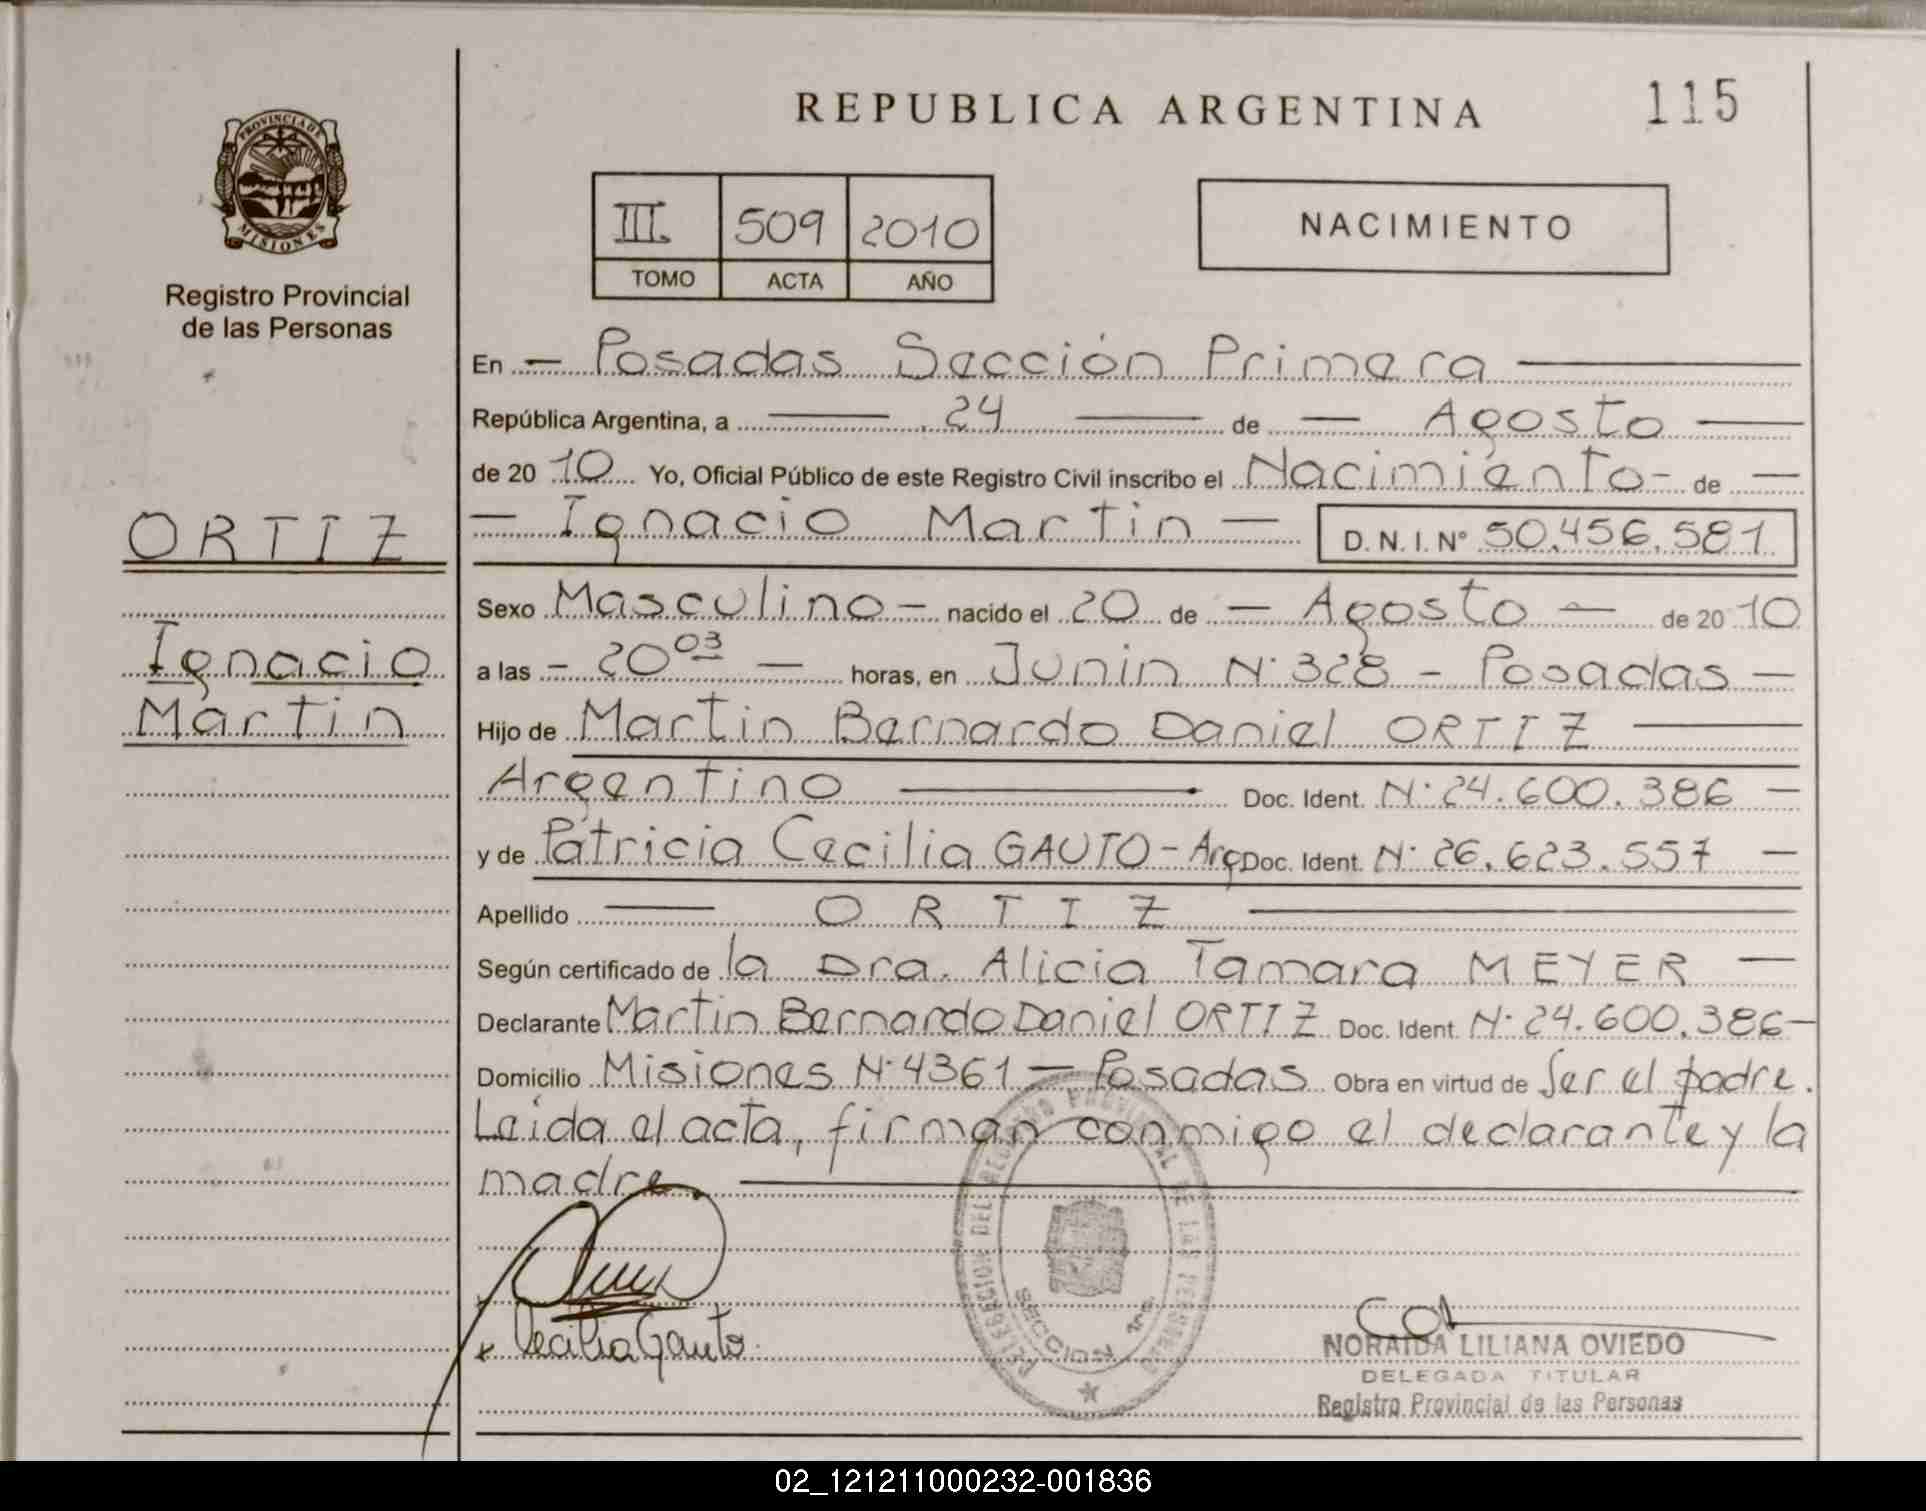 REPUBLICA ARGENTINA
115
PROVINCIA DE
MISIONES
Registro Provincial
de las Personas
III. 509 2010
TOMO ACTA AÑO
NACIMIENTO
En — Posadas Sección Primera —
República Argentina, a — 24 — de — Agosto —
de 20 10 Yo, Oficial Público de este Registro Civil inscribo el Nacimiento - de —
ORTIZ
— Ignacio Martin — D. N. I. Nº 50.456.581
Sexo Masculino — nacido el 20 de — Agosto — de 20 10
Ignacio
Martin
a las - 20 03 — horas, en Junin N° 328 - Posadas —
Hijo de Martin Bernardo Daniel ORTIZ —
Argentino — Doc. Ident. N° 24.600.386 —
y de Patricia Cecilia GAUTO - Arg Doc. Ident. N° 26.623.557 —
Apellido — ORTIZ —
Según certificado de la Dra. Alicia Tamara MEYER —
Declarante Martin Bernardo Daniel ORTIZ Doc. Ident. N° 24.600.386 —
Domicilio Misiones N° 4361 — Posadas Obra en virtud de Ser el padre.
Leida el acta, firman conmigo el declarante y la
madre —
DELEGACION DEL REGISTRO PROVINCIAL DE LAS PERSONAS
SECCION 1ra.
Cecilia Gauto
NORAIDA LILIANA OVIEDO
DELEGADA TITULAR
Registro Provincial de las Personas
02_121211000232-001836